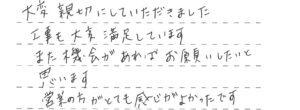 大変 親切にしていただきました
工事も大変満足しています
また機会があればお願いしたいと
思います
営業の方がとても感じがよかったです